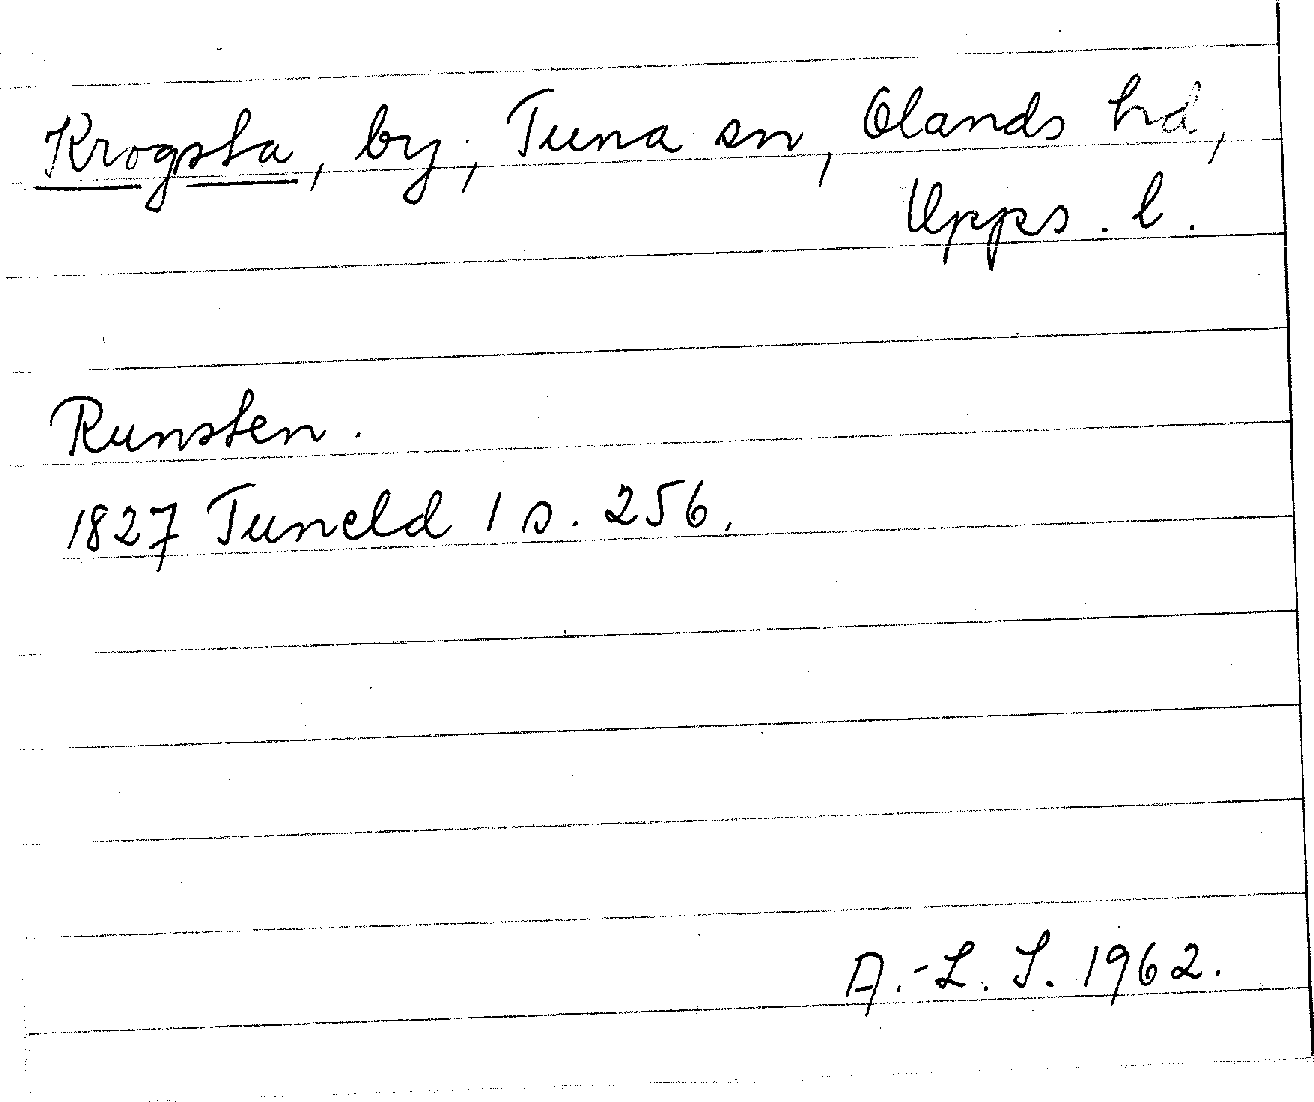 Krogsta, by, Tuna sn, Olands hd,
Upps. l.
Runsten.
1827 Tuneld 1 s. 256.
A.-L. S. 1962.